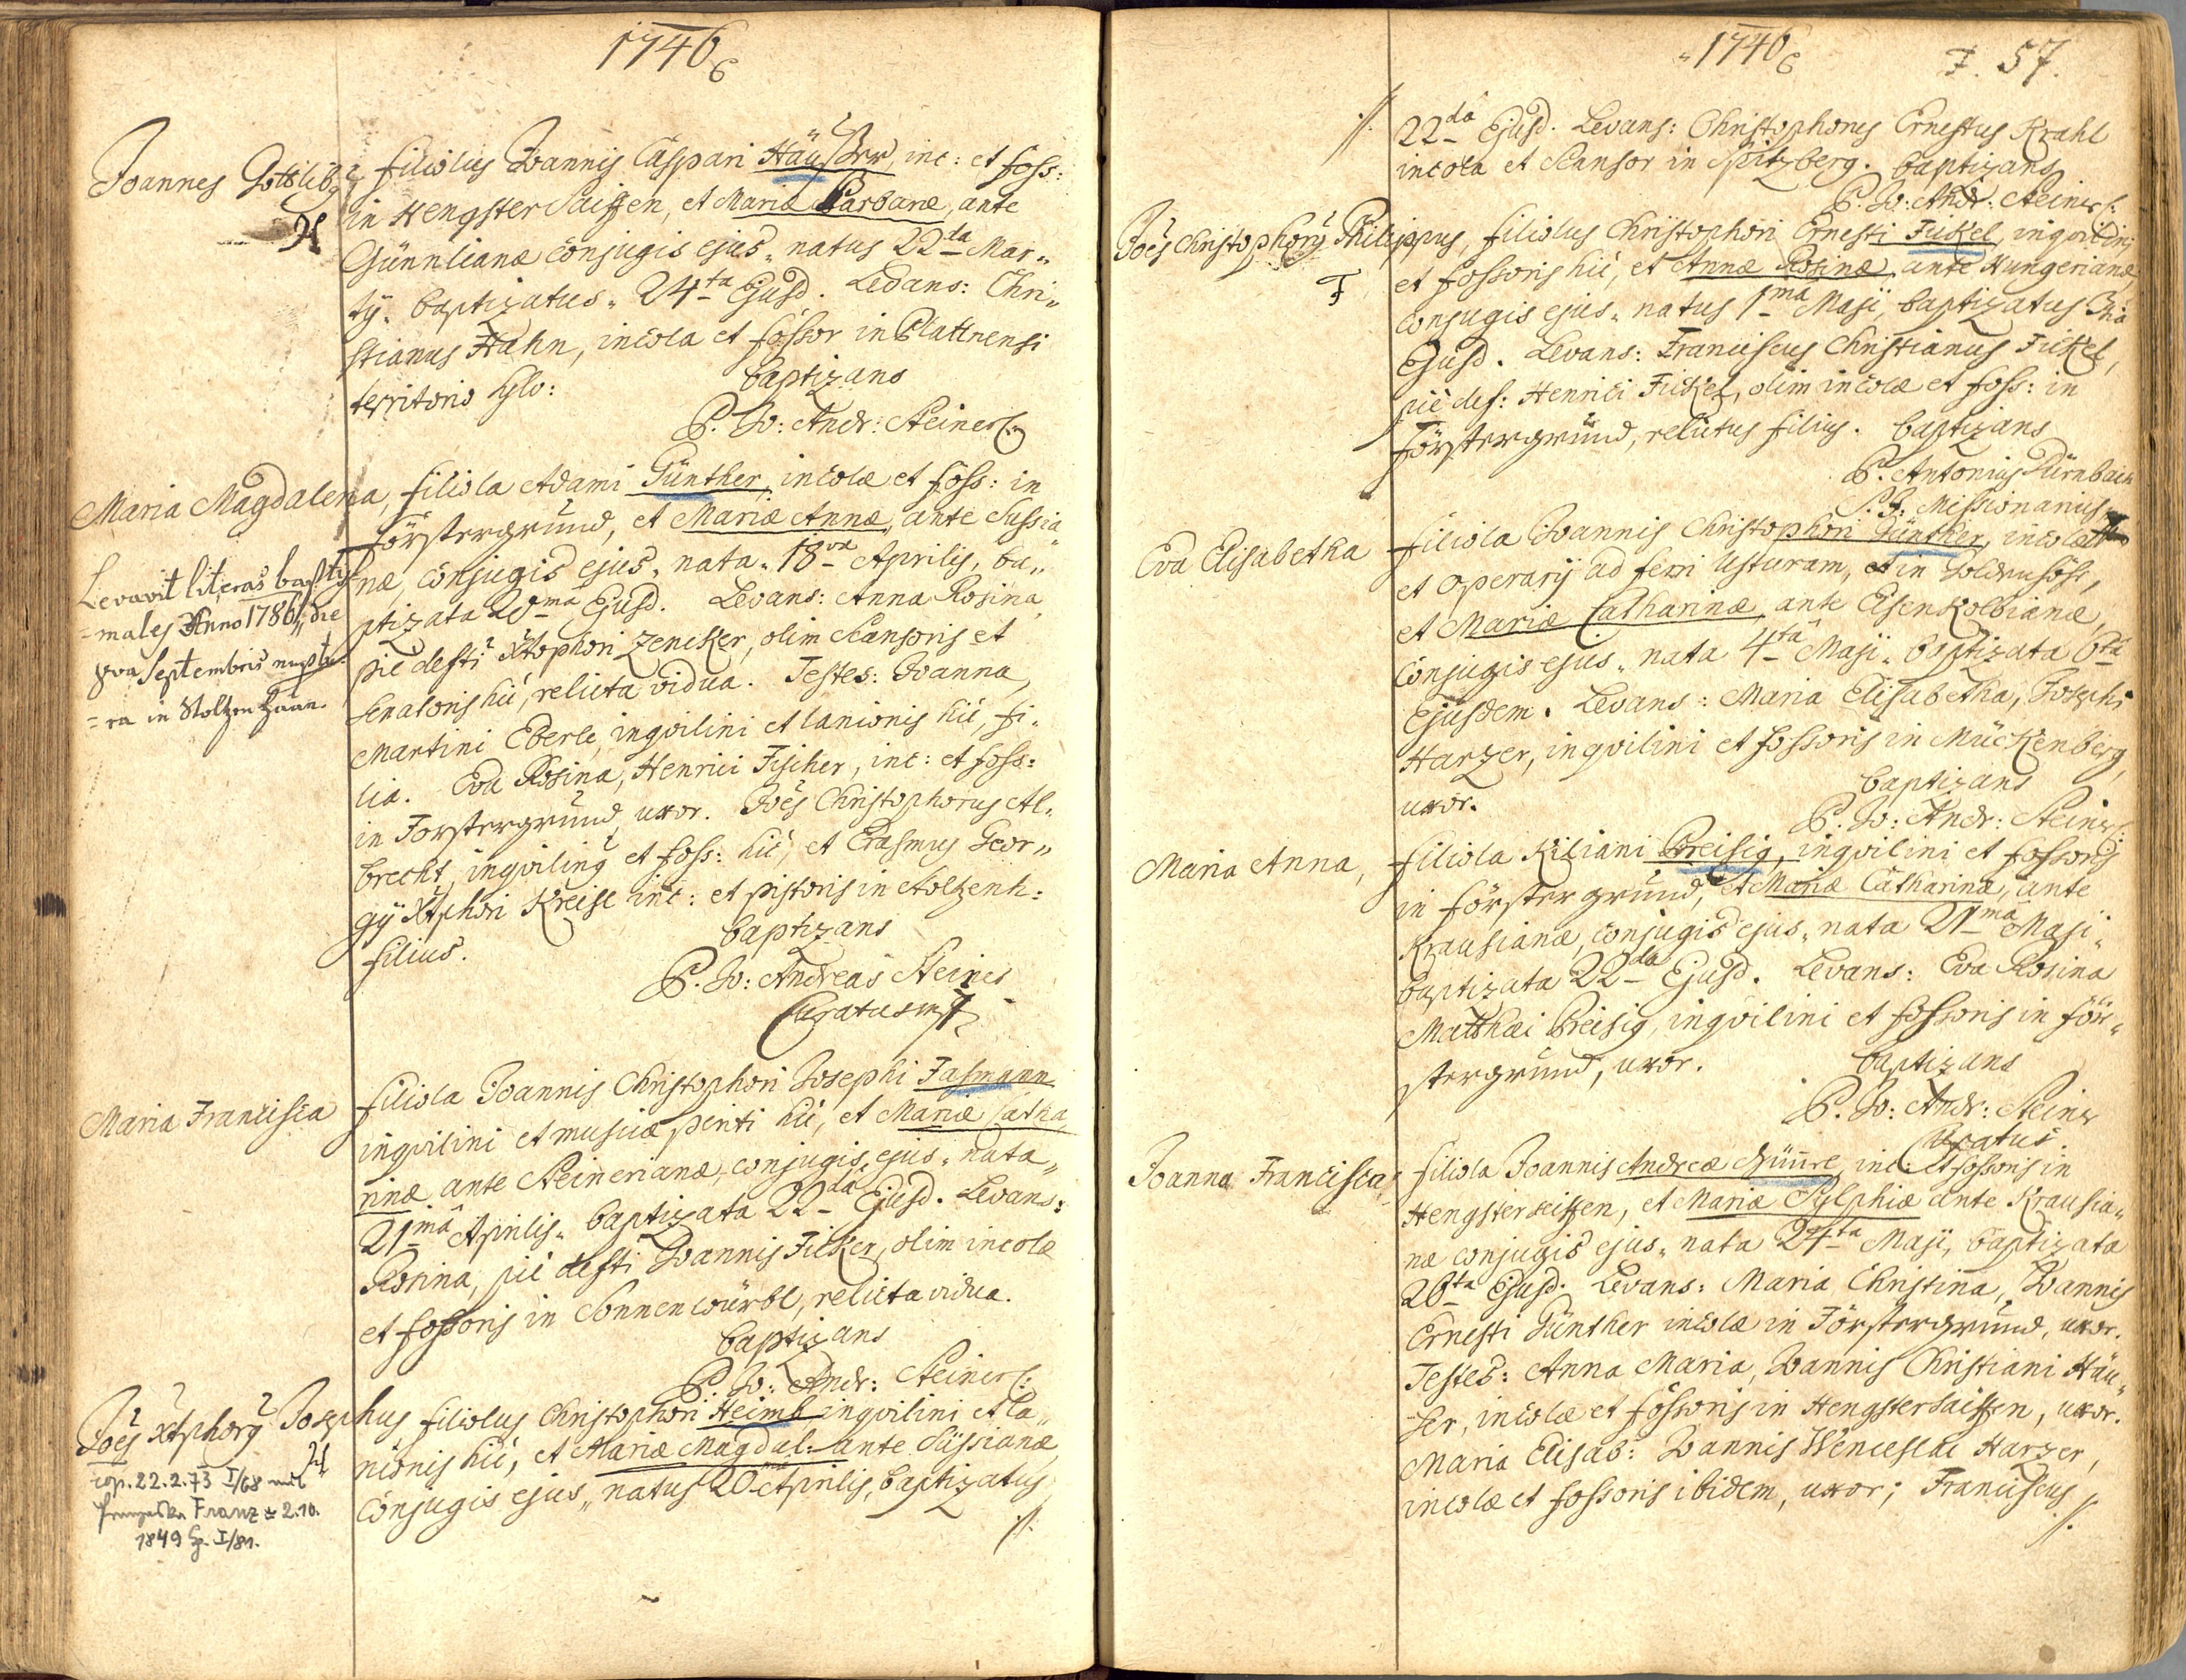 1746
6
Joannes Gottlibq
filiolus Joannis Caspari Häußer, inc: et foss:
in Hengster Saiffen, et Mariæ Barbaræ, ante
Günnlianæ conjugis ejus„ natus 22da Mar„
tÿ„ baptizatus„ 24ta Ejusd. Levans: Chri„
stianus Hahn, incola et fossor in Plattnensi
territorio
baptizans
P. Jo: Andr: Steiner
Maria Magdalena, filiola Adami Günther, incolæ et foss: in
Förstergrund, et Mariæ Annæ, ante Süssia„
næ, conjugis ejus„ nata„ 18va Aprilis, ba„
ptizata 20ma Ejusd. Levans: Anna Rosina
pié defti Xtophori Zencker, olim Scansoris et
Senatoris hic, relicta vidua. Testes: Joanna,
Martini Eberle, inqvilini et lanionis hic, fi„
lia. Eva Rosina, Henrici Fischer, inc: et foss:
in Forstergrund, uxor. Joës Christophorus Al„
brecht, inqviling et foss: hic, et Erasmus Geor„
gÿ Xtphori Kreisl inc: et pistoris in Stolzenh:
filius.
baptizans
P. Jo: Andreas Steiner
Curatus
Levavit literas baptis
=males Anno 1786„ die
8va Septembris nupta
=ra in Stoltzen Haan.
Maria Francisca
filiola Joannis Christophori Josephi Fasmann
inqvilini et musicæ periti hic, et Mariæ Catha„
rinæ ante Steinerianæ, conjugis ejus„ nata„
21mâ Aprilis„ baptizata 22da Ejusd. Levans:
Rosina, pié defti Joannis Ficker, olim incolæ
et fossoris in Sonnenwürbl, relicta vidua.
baptizans
P. Jo: Andr: Steiner
Joës Xtphorq Josephus filiolus Christophori Heimb inqvilini et la„
nionis hic, et Mariæ Magdal: ante Süssianæ
conjugis ejus„ natus 20 Aprilis, baptizatus
cop. 22.2.73 I/68 mit
Franziska Franz * 2.10.
1849 I/81.
1746
6
F. 57.
22da Ejusd. Levans: Christophorus Ernestus Krahl
incola et Scansor in Spitzberg. baptizans
P. Jo: Andr: Steiner
Joës Christophorq Philippus, filiolus Christophori Ernesti Fickel, inqvilini
et fossoris hic, et Annæ Rosinæ ante Hungerianæ,
conjugis ejus„ natus 1ma Maji, baptizatus
Ejusd. Levans: Franciscus Christianus Fickel,
pié def: Henrici Fickel, olim incolæ et foss: in
Förstergrund, relictus filius. baptizans
P. Antonius Dürnbach
S. J. Missionarius.
Eva Elisabetha
filiola Joannis Christophori Günther, incolæ
et operarÿ ad ferri Usturam, in Goldenhöhe,
et Mariæ Catharinæ, ante Eisenkolbianæ,
conjugis ejus„ nata 4ta Maji„ baptizata 6ta
Ejusdem. Levans: Maria Elisabetha, Josephi
Harzer, inqvilini et fossoris in Mückenberg,
uxor.
baptizans
P. Jo: Andr: Steiner
Maria Anna,
filiola Kiliani Preisig, inqvilini et fossoris
in Förstergrund, et Mariæ Catharinæ, ante
Krausianæ, conjugis ejus„ nata 21mâ Maji„
baptizata 22da Ejusd. Levans: Eva Rosina
Matthæi Preisig, inqvilini et fossoris in För„
stergrund, uxor.
baptizans
P. Jo: Andr: Steiner
Curatus.
Joanna Francisca,
filiola Joannis Andreæ Günnl, inc: et fossoris in
Hengsterseiffen, et Mariæ Sylphiæ ante Krausia„
næ conjugis ejus„ nata 24ta Maji, baptizata
26ta Ejusd. Levans: Maria Christina, Joannis
Ernesti Günther incolæ in Förstergrund, uxor.
Testes: Anna Maria, Joannis Christiani Häu„
ser, incolæ et fossoris in Hengstersaiffen, uxor.
Maria Elisab: Joannis Wenceslai Harzer,
incolæ et fossoris ibidem, uxor; Franciscus